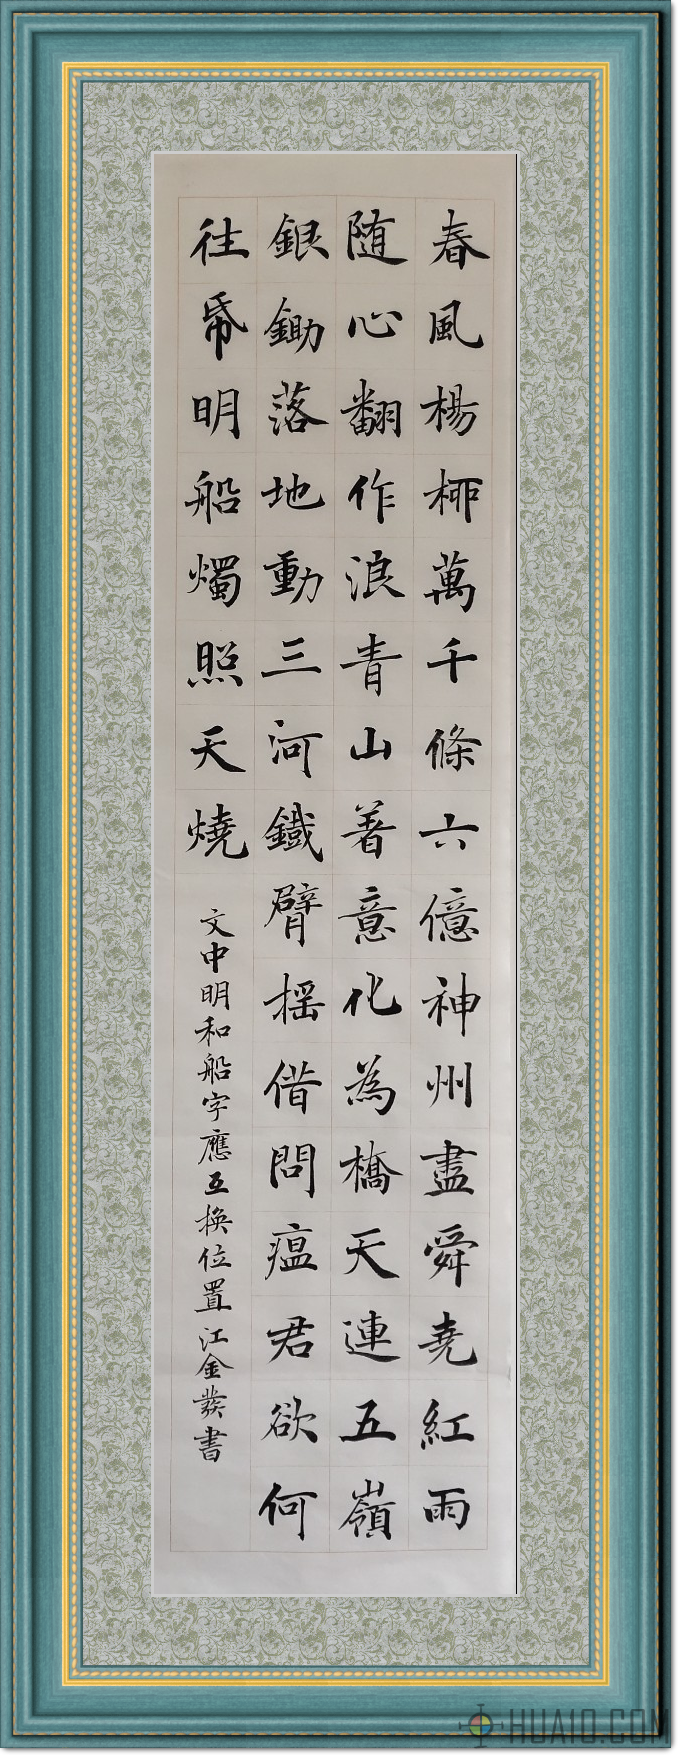 春風楊柳萬千條六億神州盡舜堯紅雨
随心翻作浪青山著意化為橋天連五嶺
銀鋤落地動三河鐵臂摇借問瘟君欲何
往帋明船燭照天燒
文中明和船字應互换位置江金發書
HUA10.COM